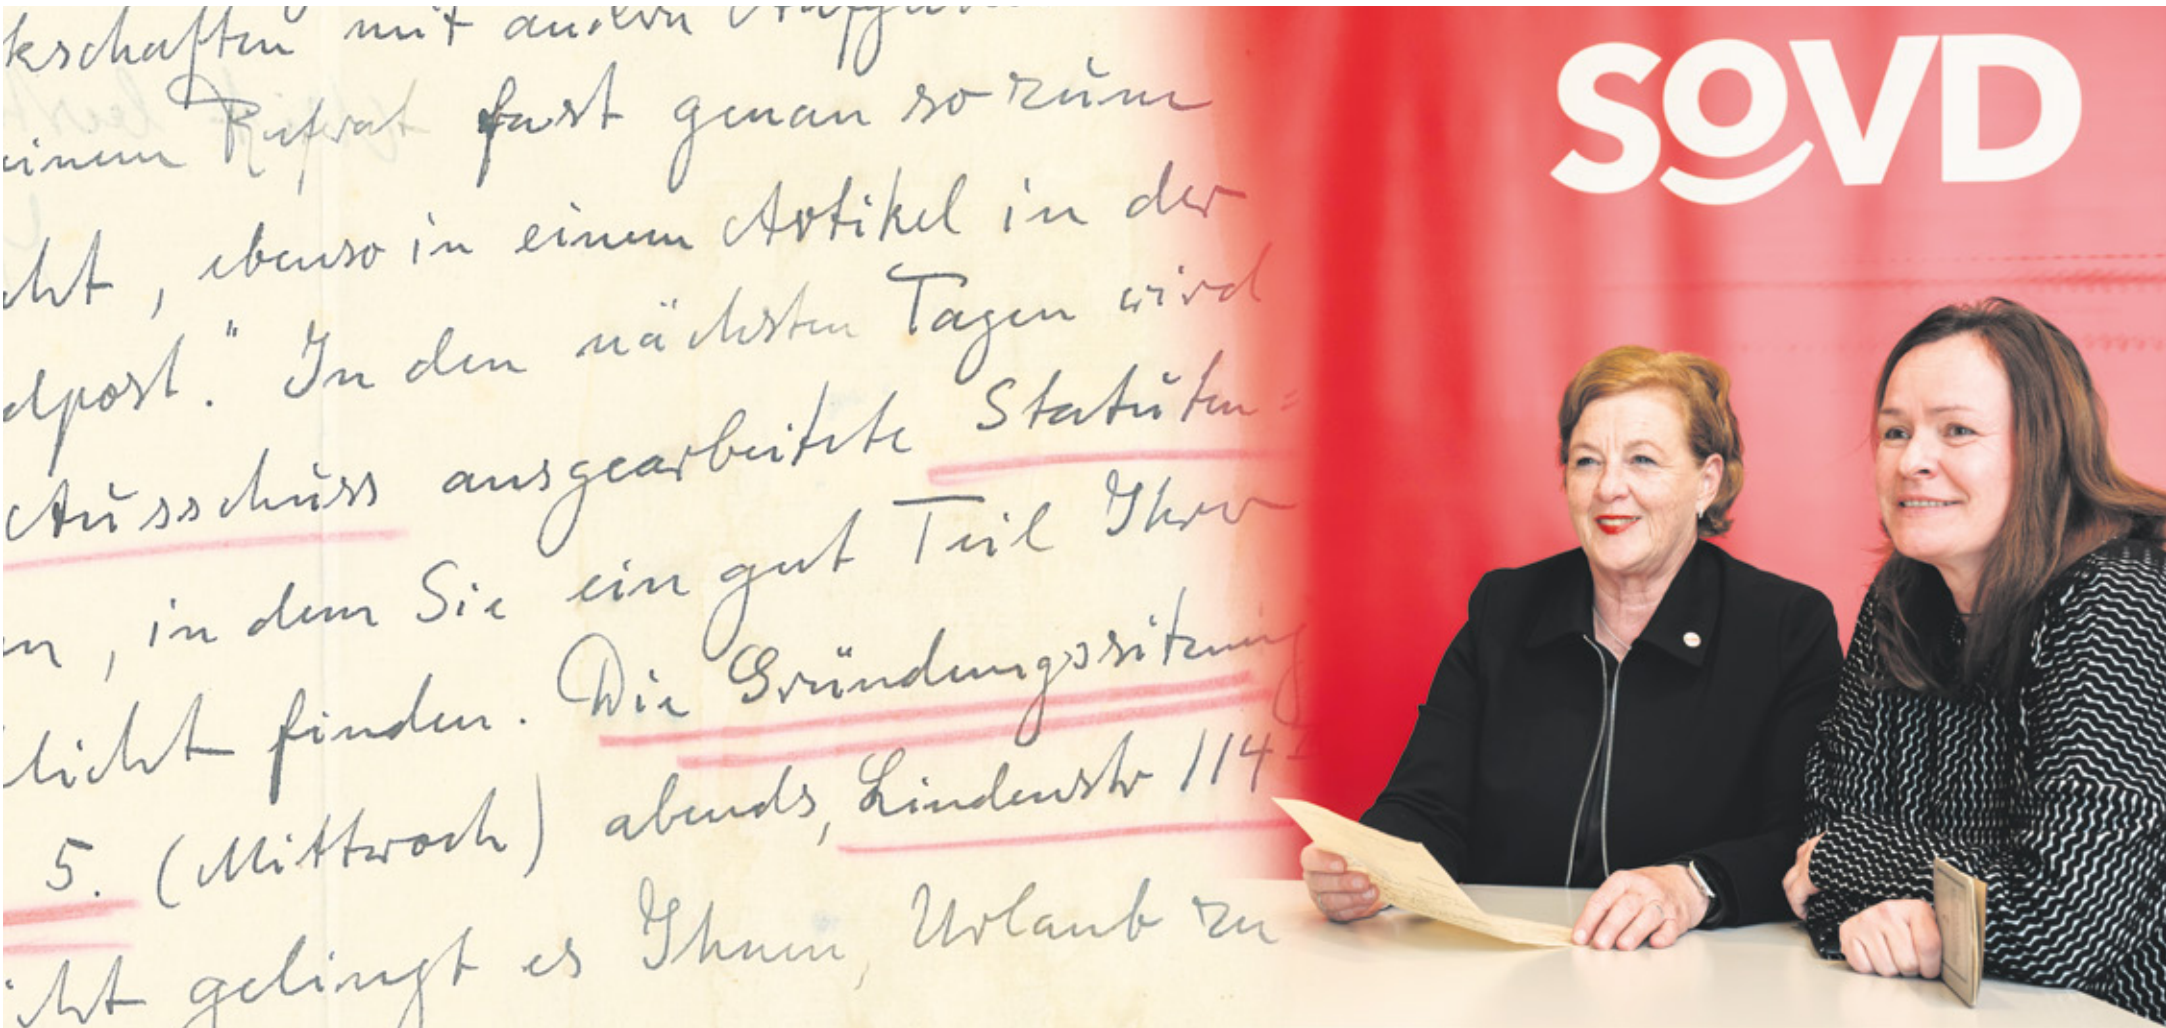 kschaften mit andern
einem Referat fast genau so zum
cht, ebenso in einem Artikel in der
dpost." In den nächsten Tagen wird
Ausschuss ausgearbeitete Statuten=
en, in dem Sie ein gut Teil Ihrer
licht finden. Die Gründungssitzung
5. (Mittwoch) abends, Lindenstr 114 I
cht gelingt es Ihnen, Urlaub zu
SoVD